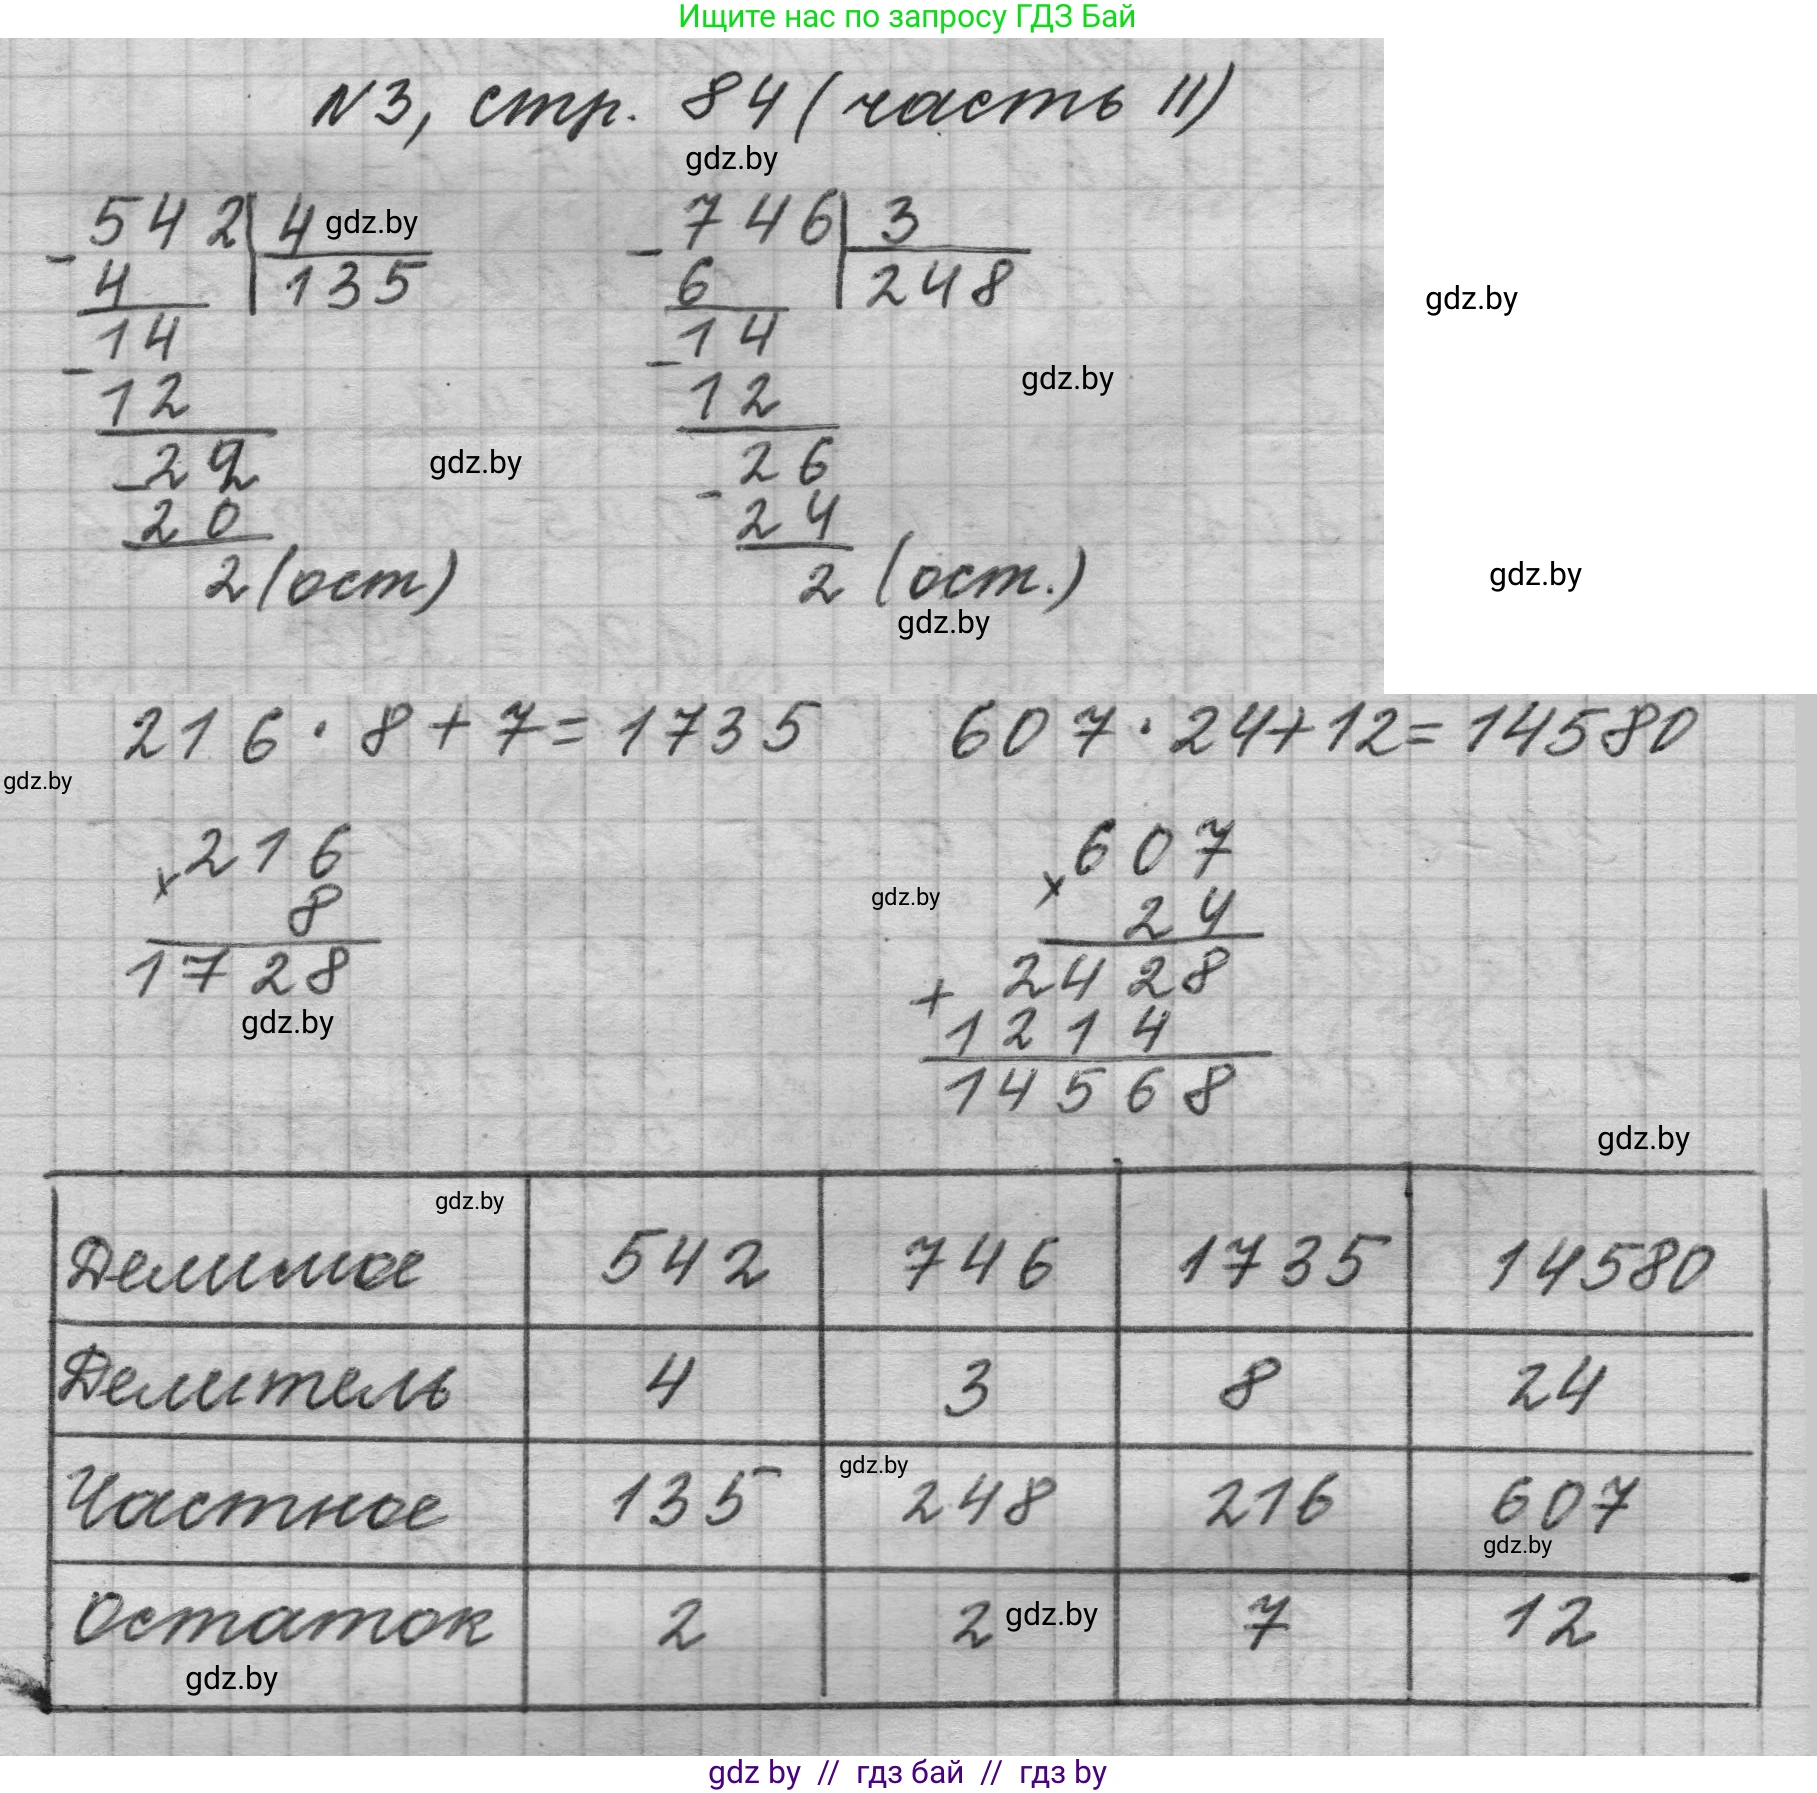 Ищите нас по запросу ГДЗ Бай
N3, стр. 84 (часть II)
gdz.by
542 4 gdz.by
- 4 135
14
- 12
- 22
20
2 (ост)
gdz.by
746 3
- 6 248
14
- 12
- 26
24
2 (ост.)
gdz.by
gdz.by
gdz.by
gdz.by
216 · 8 + 7 = 1735
607 · 24 + 12 = 14580
gdz.by
x 216
8
1728
gdz.by
gdz.by
x 607
24
+ 2428
1214
14568
gdz.by
gdz.by
Делимое 542 746 1735 14580
Делитель 4 3 8 24
gdz.by
Частное 135 248 216 607
gdz.by
Остаток 2 2 gdz.by 7 12
gdz.by
gdz by // гдз бай // гдз by